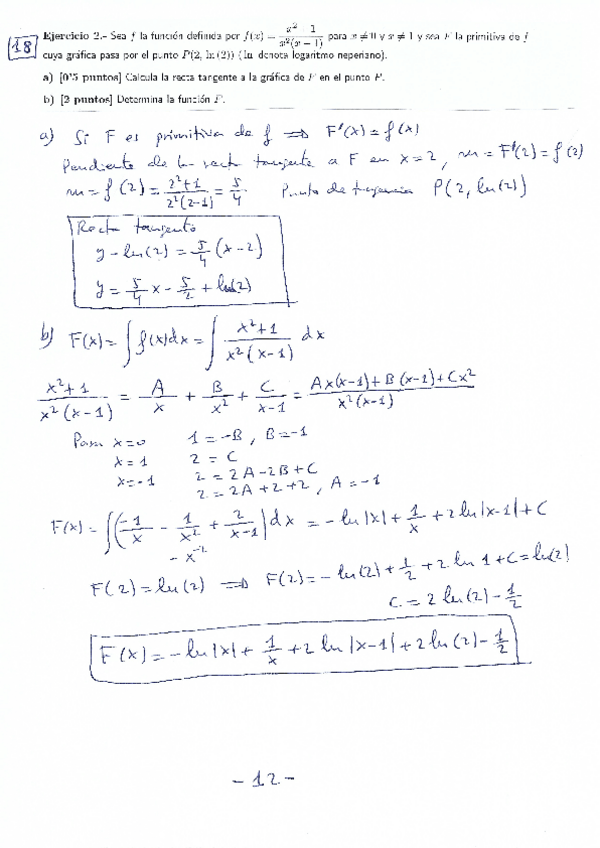 18
Ejercicio 2.- Sea f la función definida por f(x) = x² 1 / x²(x − 1) para x ≠ 0 y x ≠ 1 y sea F la primitiva de f
cuya gráfica pasa por el punto P(2, ln(2)) (ln denota logaritmo neperiano).
a) [0'5 puntos] Calcula la recta tangente a la gráfica de F en el punto P.
b) [2 puntos] Determina la función F.
a) Si F es primitiva de f ⟹ F'(x) = f(x)
Pendiente de la recta tangente a F en x=2, m = F'(2) = f(2)
m = f(2) = 2²+1 / 2²(2-1) = 5/4. Punto de tangencia P(2, ln(2))
Recta tangente
y - ln(2) = 5/4 (x-2)
y = 5/4 x - 5/2 + ln(2)
b) F(x) = ∫ f(x)dx = ∫ x²+1 / x²(x-1) dx
x²+1 / x²(x-1) = A/x + B/x² + C/x-1 = Ax(x-1)+B(x-1)+Cx² / x²(x-1)
Para x=0 1 = -B, B=-1
x=1 2 = C
x=-1 2 = 2A-2B+C
2 = 2A+2+2, A=-1
F(x) = ∫(-1/x - 1/x² + 2/x-1)dx = -ln|x| + 1/x + 2ln|x-1| + C
- x⁻²
F(2) = ln(2) ⟹ F(2) = -ln(2) + 1/2 + 2 ln 1 + C = ln(2)
C = 2 ln(2) - 1/2
F(x) = -ln|x| + 1/x + 2 ln|x-1| + 2 ln(2) - 1/2
-12-